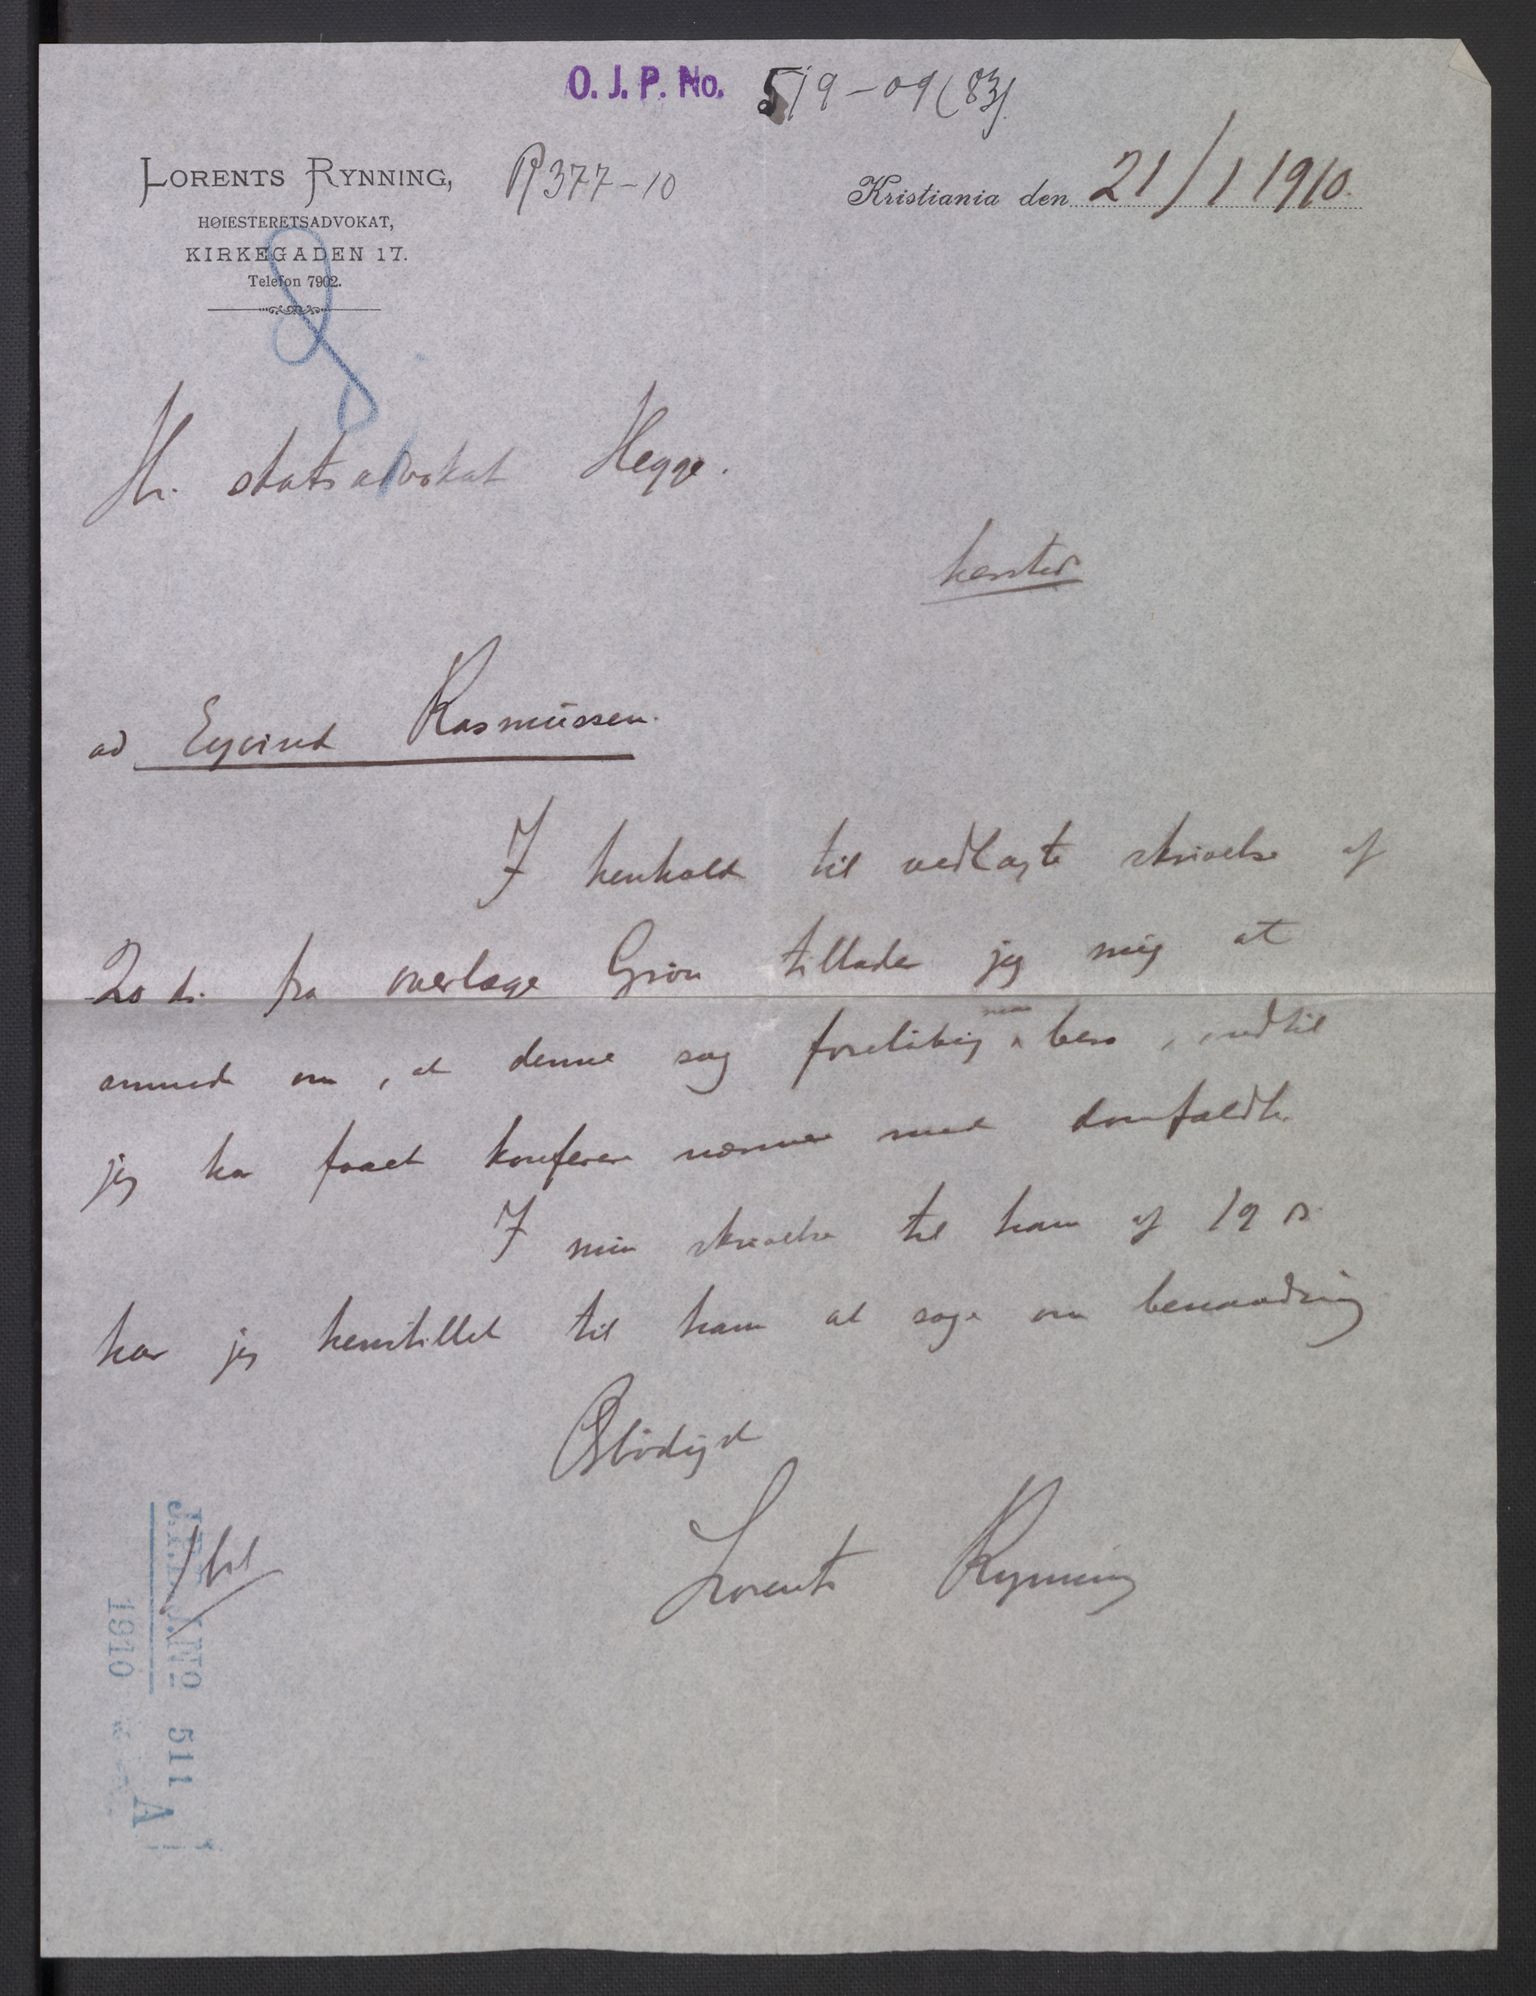 O. J. P. No. 519-09(83)
LORENTS RYNNING,
HØIESTERETSADVOKAT,
KIRKEGADEN 17.
Telefon 7902.
R 377-10
Kristiania den 21/1 1910.
Hr. statsadvokat Hegge.
hersted
ad Eyvind Rasmussen.
I henhold til vedlagte skrivelse af
20 ds. fra overlæge Grøn tillader jeg mig at
anmode om, at denne sag foreløbig bero, indtil
jeg har faaet konferere nærmere med domfældte.
I min skrivelse til ham af 19 ds.
har jeg henstillet til ham at søge om benaadning
Ærbødigst
Lorents Rynning
1 bil
511
1910
A